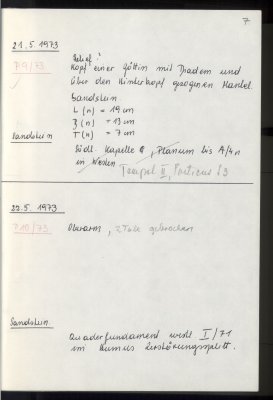 7
21.5.1973
P 9/73
Relief:
Kopf einer Göttin mit Diadem und
über den Hinterkopf gezogenen Mantel.
Sandstein
L (n) = 19 cm
B (n) = 13 cm
T (n) = 7 cm
Sandstein
Südl. Kapelle G, Planum bis A/4n
in Westen
Tempel II, Porticus S3
22.5.1973
P 10/73
Oberarm, 2 Teile gebrochen
Sandstein
Quaderfundament westl I/71
im Humus Zerstörungsschutt.